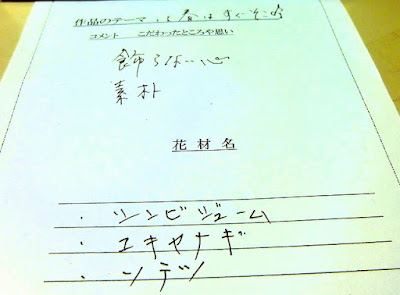 作品のテーマ いさ春はすぐそこ
コメント こだわったところや思い
飾らない心
素朴
花材名
・ シンビジューム
・ ユキヤナギ
・ ソテツ